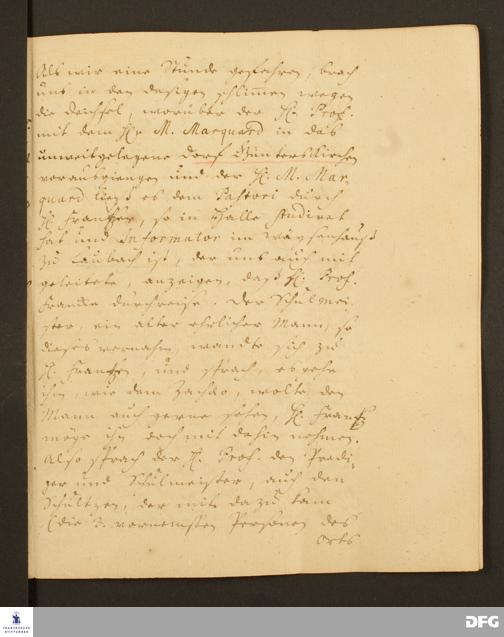 Als wir eine Stunde gefahren, brach
uns in den dasigen schlimmen wegen
die deichsel, worüber der H. Prof.
mit dem Hr M. Marquard in das
unweitgelegene dorf Günterskirchen
vorausgiengen und der H. M. Mar,
quard ließ es dem Pastori durch
H. Frantzen, so in Halle studiret
hat und Informator im Waysenhauß
zu Laubach ist, der uns auch mit
geleitete, anzeigen, daß H. Prof.
Francke durchreise. Der Schulmei,
ster, ein alter ehrlicher Mann, so
dieses vernahm, wandte sich zu
H. Frantzen, und sprach, es gehe
ihm, wie dem Zachäo, wolte den
Mann auch gerne sehen, H. Frantz
möge ihn doch mit dahin nehmen.
Also sprach der H. Prof. den Predi,
ger und Schulmeister, auch den
Schultzen, der mit dazu kam
(die 3. vornemsten Personen des
Orts
FRANCKESCHE STIFTUNGEN
DFG